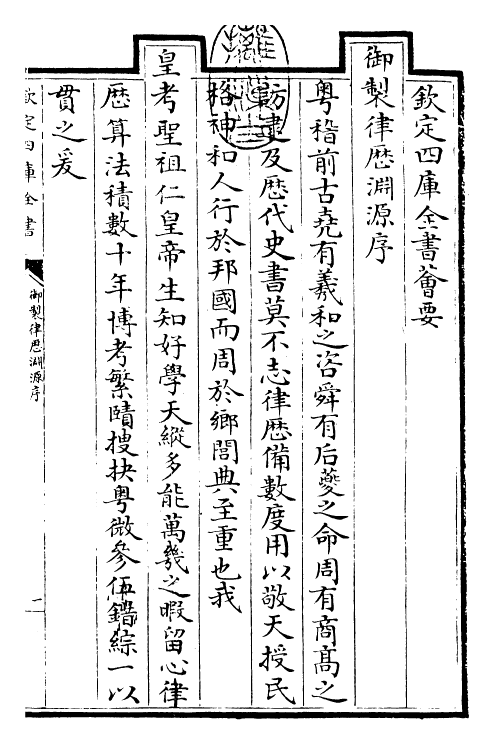 欽定四庫全書薈要
御製律歷淵源序
粵稽前古堯有羲和之咨舜有后夔之命周有商高之
訪逮及歷代史書莫不志律歷備數度用以敬天授民
格神和人行於邦國而周於鄉閭典至重也我
皇考聖祖仁皇帝生知好學天縱多能萬幾之暇留心律
歷算法積數十年博考繁賾搜抉粵微參伍錯綜一以
貫之爰
欽定四庫全書
御製律歷淵源序
一